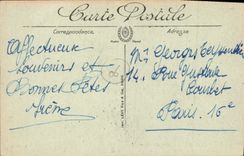 Carte Postale
Correspondance. Adresse.
Affectueux
souvenirs et
Bonnes Fêtes
Mr Georges
14 Rue Gustave
Courbet
Paris. 16e